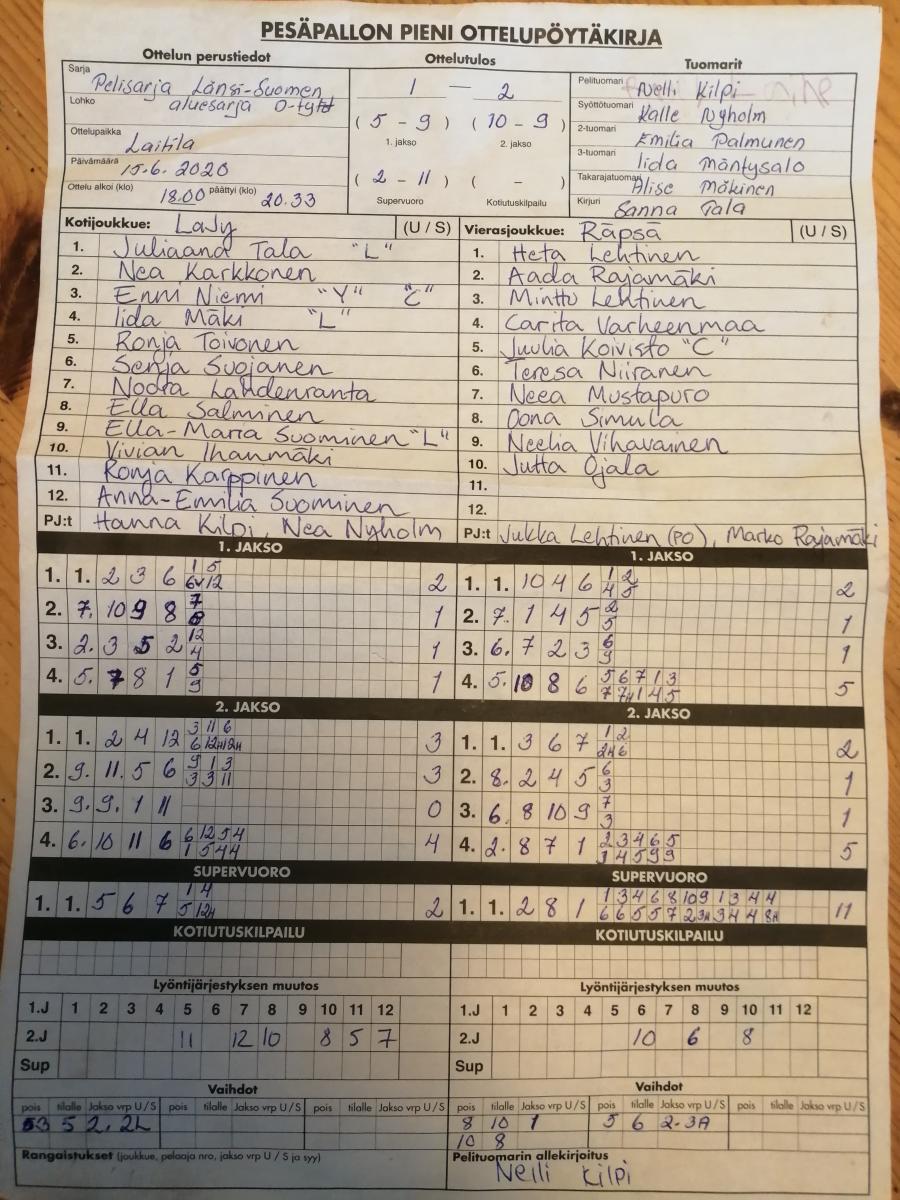 PESÄPALLON PIENI OTTELUPÖYTÄKIRJA
Ottelun perustiedot
Sarja
Pelisarja Länsi-Suomen
Lohko
aluesarja D-tytöt
Ottelupaikka
Laitila
Päivämäärä
15.6.2020
Ottelu alkoi (klo) 18.00 päättyi (klo) 20.33
Ottelutulos
1 — 2
( 5 - 9 ) ( 10 - 9 )
1. jakso 2. jakso
( 2 - 11 ) ( - )
Supervuoro Kotiutuskilpailu
Tuomarit
Pelituomari Nelli Kilpi
Syöttötuomari Kalle Nyholm
2-tuomari Emilia Palmunen
3-tuomari Iida Mäntysalo
Takarajatuomari Alise Mäkinen
Kirjuri Sanna Tala
Kotijoukkue: LaJy (U / S)
1. Juliaana Tala "L"
2. Nea Karkkonen
3. Enni Niemi "Y" "C"
4. Iida Mäki "L"
5. Ronja Toivonen
6. Senja Suojanen
7. Noora Lahdenranta
8. Ella Salminen
9. Ella-Maria Suominen "L"
10. Vivian Ihanmäki
11. Ronja Karppinen
12. Anna-Emilia Suominen
PJ:t Hanna Kilpi, Nea Nyholm
Vierasjoukkue: Räpsä (U / S)
1. Heta Lehtinen
2. Aada Rajamäki
3. Minttu Lehtinen
4. Carita Varheenmaa
5. Juulia Koivisto "C"
6. Teresa Niiranen
7. Neea Mustapuro
8. Oona Simula
9. Neelia Vihavainen
10. Jutta Ojala
11.
12.
PJ:t Jukka Lehtinen (PO), Marko Rajamäki
1. JAKSO
1. 1. 2 3 6 1 5 2
6v 12
2. 7. 10 9 8 7 1
8
3. 2. 3 5 2 12 1
4
4. 5. 7 8 1 5 1
9
1. JAKSO
1. 1. 10 4 6 1 2 2
4 5
2. 7. 1 4 5 2 1
5
3. 6. 7 2 3 6 1
9
4. 5. 10 8 6 5 6 7 1 3 5
7 7H 1 4 5
2. JAKSO
1. 1. 2 4 12 3 11 6 3
6 12H 12H
2. 9. 11. 5 6 9 1 3 3
3 3 11
3. 9. 9. 1 11 0
4. 6. 10 11 6 6 12 5 4 4
1 5 4 4
2. JAKSO
1. 1. 3 6 7 1 2 2
2H 6
2. 8. 2 4 5 6 1
3
3. 6. 8 10 9 7 1
3
4. 2. 8 7 1 2 3 4 6 5 5
1 4 5 9 9
SUPERVUORO
1. 1. 5 6 7 1 4 2
5 12H
SUPERVUORO
1. 1. 2 8 1 1 3 4 6 8 10 9 1 3 4 4 11
6 6 5 5 7 2 3H 3 4 4 8H
KOTIUTUSKILPAILU
KOTIUTUSKILPAILU
Lyöntijärjestyksen muutos
1.J 1 2 3 4 5 6 7 8 9 10 11 12
2.J 11 12 10 8 5 7
Sup
Lyöntijärjestyksen muutos
1.J 1 2 3 4 5 6 7 8 9 10 11 12
2.J 10 6 8
Sup
Vaihdot
pois tilalle Jakso vrp U / S pois tilalle Jakso vrp U / S pois tilalle Jakso vrp U / S
3 5 2. 2L
Vaihdot
pois tilalle Jakso vrp U / S pois tilalle Jakso vrp U / S pois tilalle Jakso vrp U / S
8 10 1 5 6 2-3A
10 8
Rangaistukset (joukkue, pelaaja nro, jakso vrp U / S ja syy)
Pelituomarin allekirjoitus
Nelli Kilpi